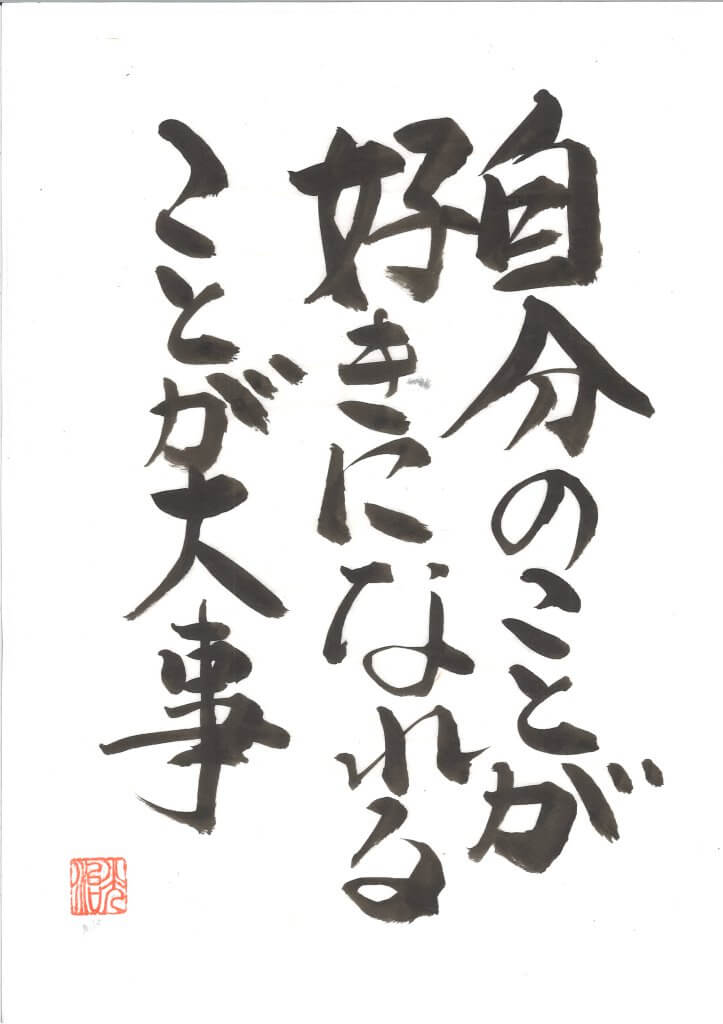 自分のことが
好きになれる
ことが大事